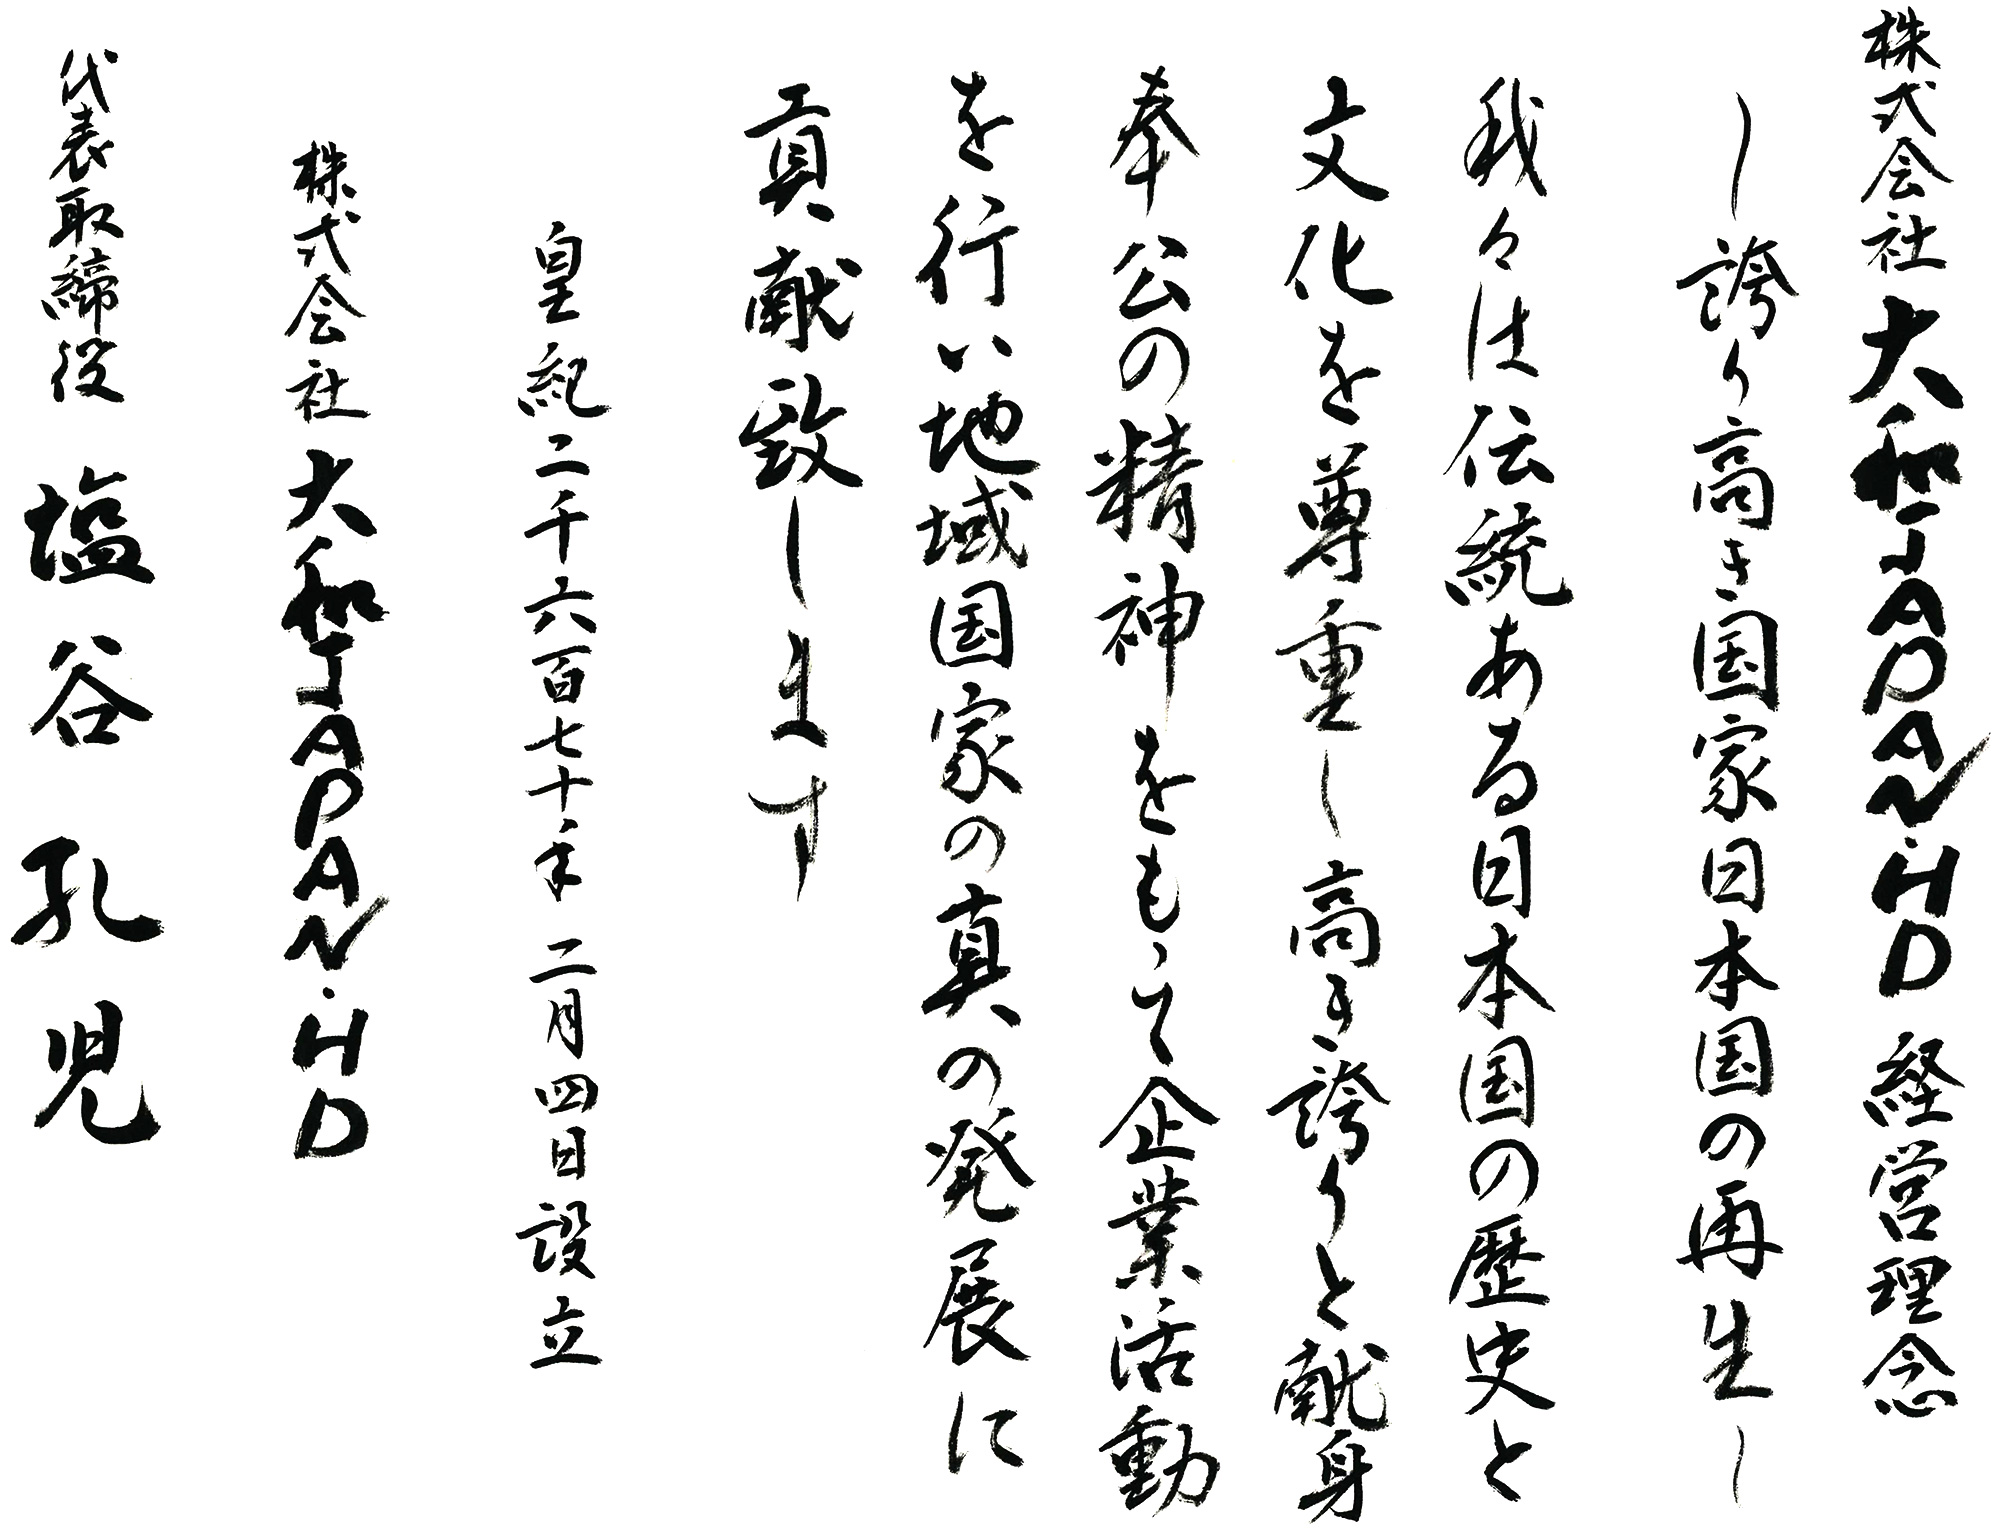 株式会社大和JAPAN・HD経営理念
～誇り高き国家日本国の再生～
我々は伝統ある日本国の歴史と
文化を尊重し高き誇りと献身
奉公の精神をもって企業活動
を行い地域国家の真の発展に
貢献致します
皇紀二千六百七十年二月四日設立
株式会社大和JAPAN・HD
代表取締役 塩谷孔児